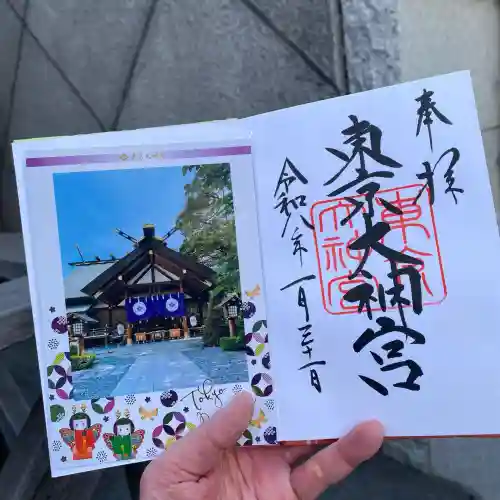 奉拝
東京大神宮
令和八年一月三十一日
東京大神宮
Tokyo